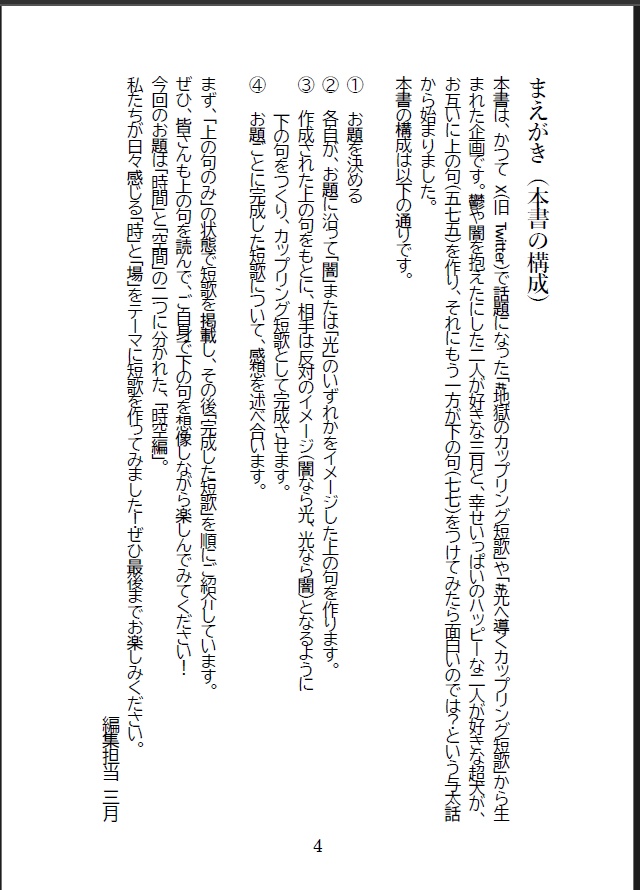 まえがき（本書の構成）
本書は、かつて X(旧 Twitter)で話題になった「#地獄のカップリング短歌」や「#光へ導くカップリング短歌」から生
まれた企画です。鬱や闇を抱えたにした二人が好きな三月と、幸せいっぱいのハッピーな二人が好きな超犬が、
お互いに上の句(五七五)を作り、それにもう一方が下の句(七七)をつけてみたら面白いのでは？という与太話
から始まりました。
本書の構成は以下の通りです。
① お題を決める
② 各自が、お題に沿って「闇」または「光」のいずれかをイメージした上の句を作ります。
③ 作成された上の句をもとに、相手は反対のイメージ(闇なら光、光なら闇)となるように
下の句をつくり、カップリング短歌として完成させます。
④ お題ごとに完成した短歌について、感想を述べ合います。
まず、「上の句のみ」の状態で短歌を掲載し、その後「完成した短歌」を順にご紹介しています。
ぜひ、皆さんも上の句を読んで、ご自身で下の句を想像しながら楽しんでみてください！
今回のお題は「時間」と「空間」の二つに分かれた、「時空編」。
私たちが日々感じる「時」と「場」をテーマに短歌を作ってみました！ぜひ最後までお楽しみください。
編集担当 三月
4